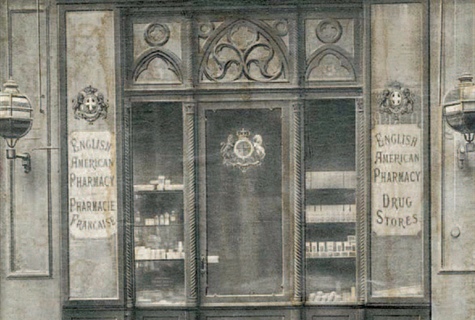 ENGLISH
AMERICAN
PHARMACY
PHARMACIE
FRANÇAISE
ENGLISH
AMERICAN
PHARMACY
DRUG
STORES